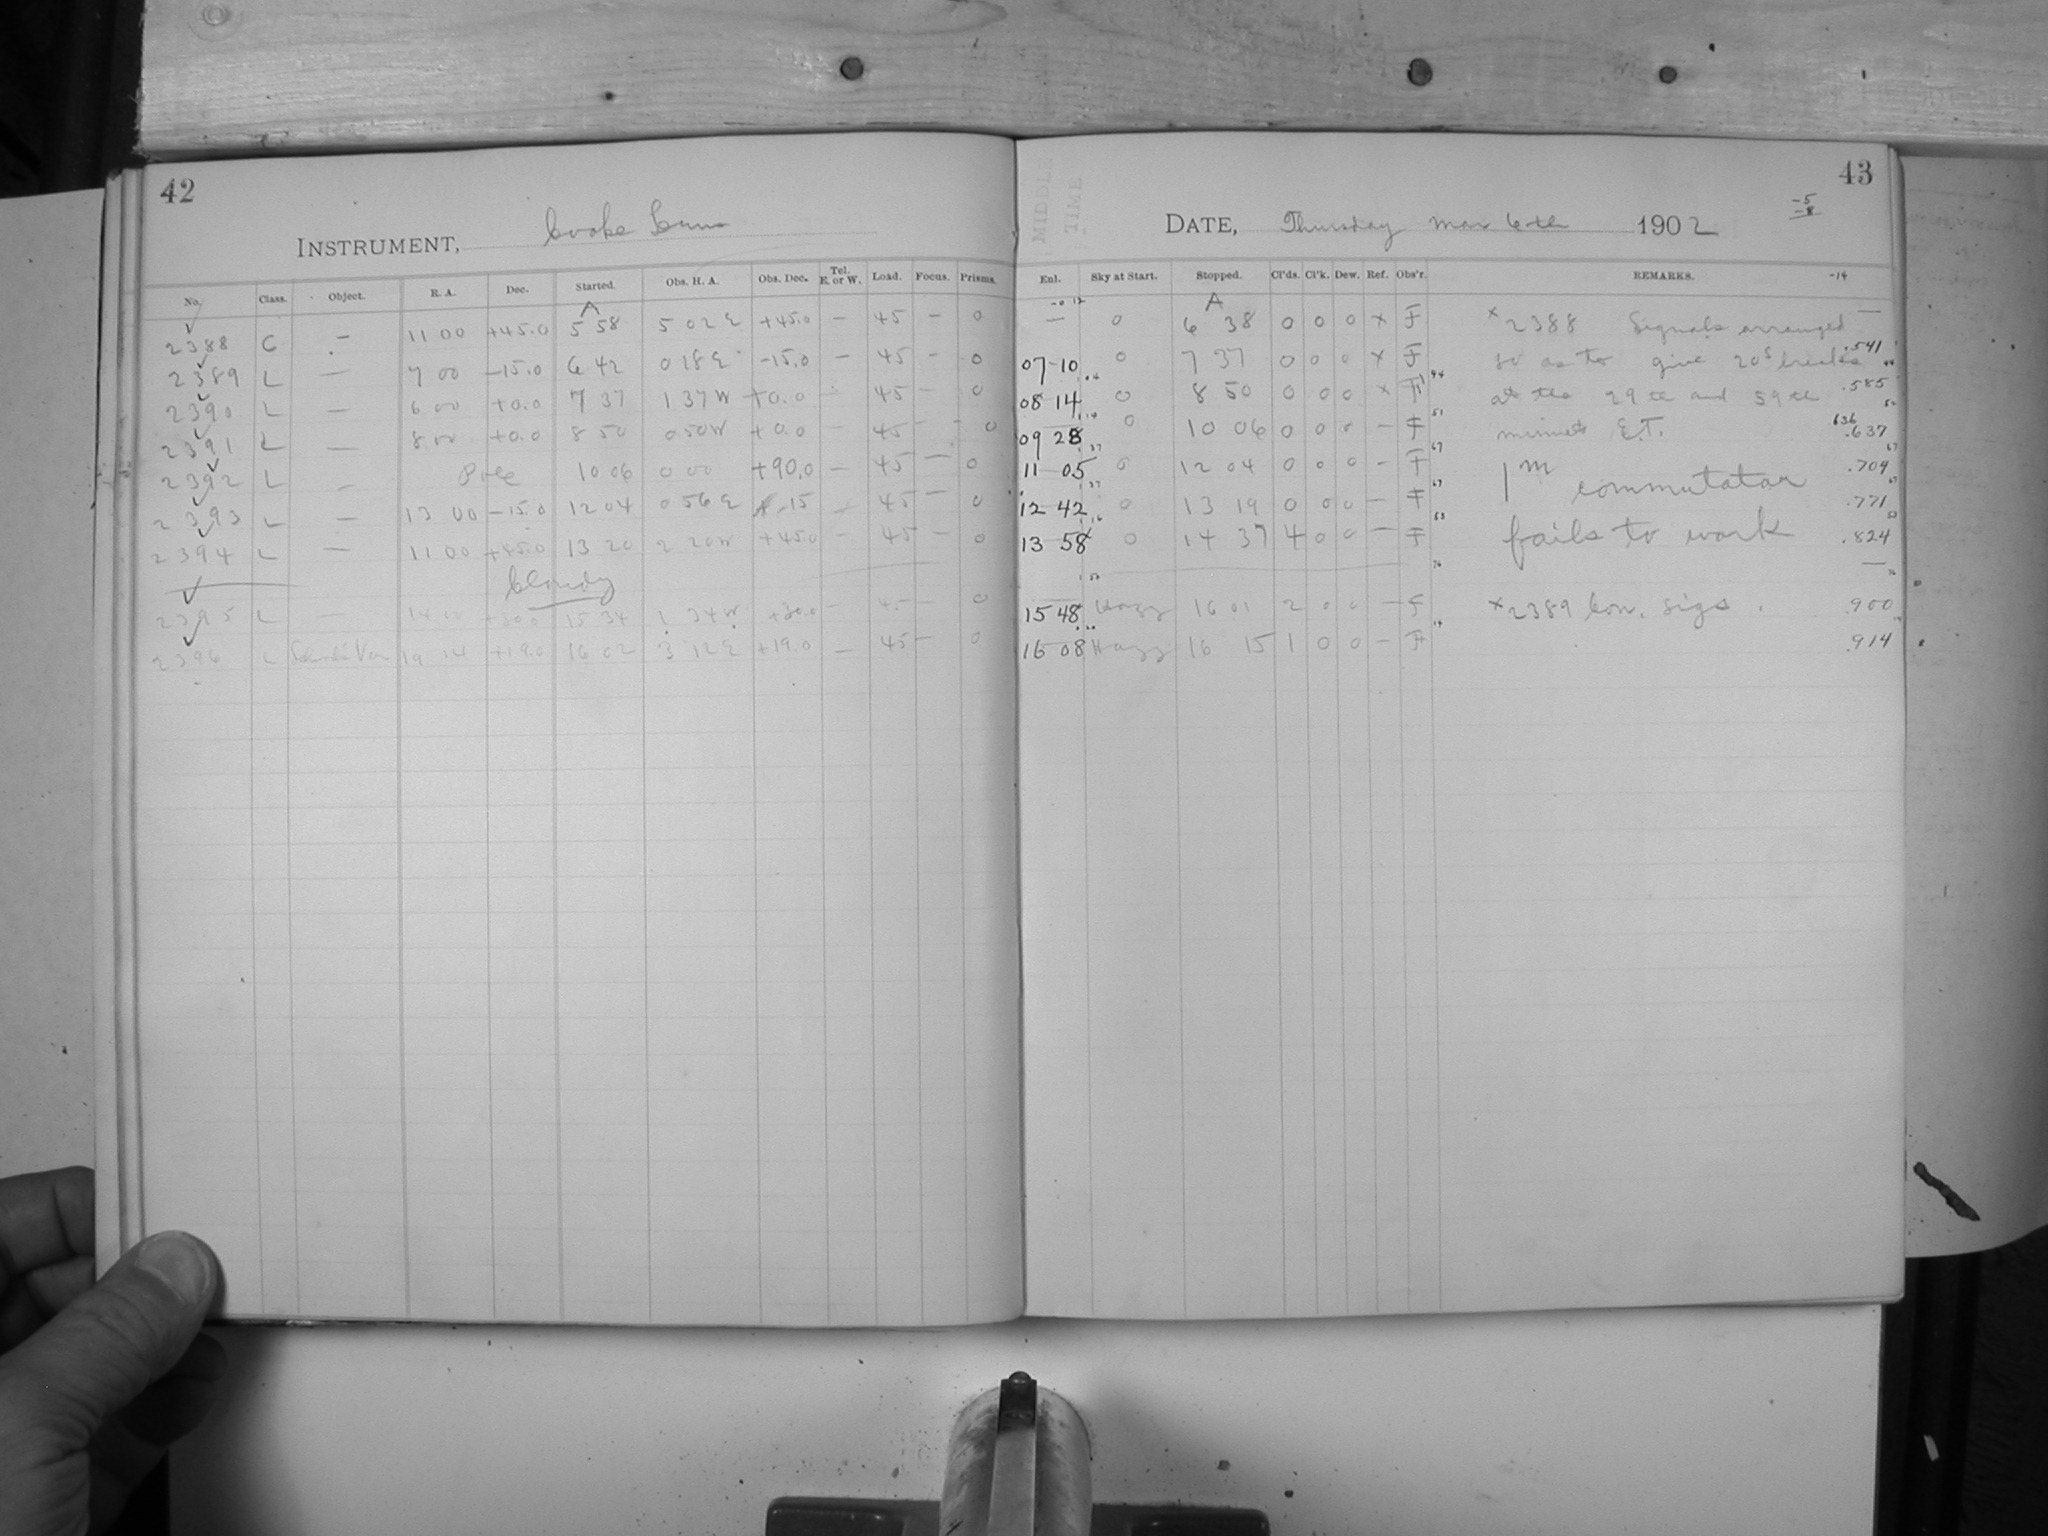 42
INSTRUMENT, Cooke Lens
No. Class. Object. R. A. Dec. Started. Obs. H. A. Obs. Dec. Tel. E. or W. Load. Focus. Prisms.
A
2388 C — 11 00 +45.0 5 58 5 02 E +45.0 — 45 — 0
2389 L — 7 00 -15.0 6 42 0 18 E -15.0 — 45 — 0
2390 L — 6 00 +0.0 7 37 1 37 W +0.0 — 45 — 0
2391 L — 8 00 +0.0 8 50 0 50 W +0.0 — 45 — 0
2392 L — Pole 10 06 0 00 +90.0 — 45 — 0
2393 L — 13 00 -15.0 12 04 0 56 E -15 — 45 — 0
2394 L — 11 00 +45.0 13 20 2 20 W +45.0 — 45 — 0
Cloudy
2395 L — 14 00 +30.0 15 34 1 34 W +30.0 — 45 — 0
2396 L 19 14 +19.0 16 02 3 12 E +19.0 — 45 — 0
43
MIDDLE TIME
DATE, Thursday Mar 6th 1902
-5
-8
Enl. Sky at Start. Stopped. Cl'ds. Cl'k. Dew. Ref. Obs'r. REMARKS. -14
A
— 0 6 38 0 0 0 x F x2388 Signals arranged —
07-10 0 7 37 0 0 0 x F so as to give 20s breaks .541
08 14 0 8 50 0 0 0 x F at the 29th and 59th .585
09 28 0 10 06 0 0 0 - F minutes E.T. 636 .637
11 05 0 12 04 0 0 0 - F 1m commutator .704
12 42 0 13 19 0 0 0 — F .771
13 58 0 14 37 4 0 0 — F fails to work .824
—
15 48 Hazy 16 01 2 0 0 — F x2389 Con. sigs. .900
16 08 Hazy 16 15 1 0 0 — F .914